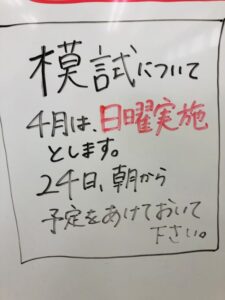 模試について
4月は、日曜実施
とします。
24日、朝から
予定をあけておいて
下さい。